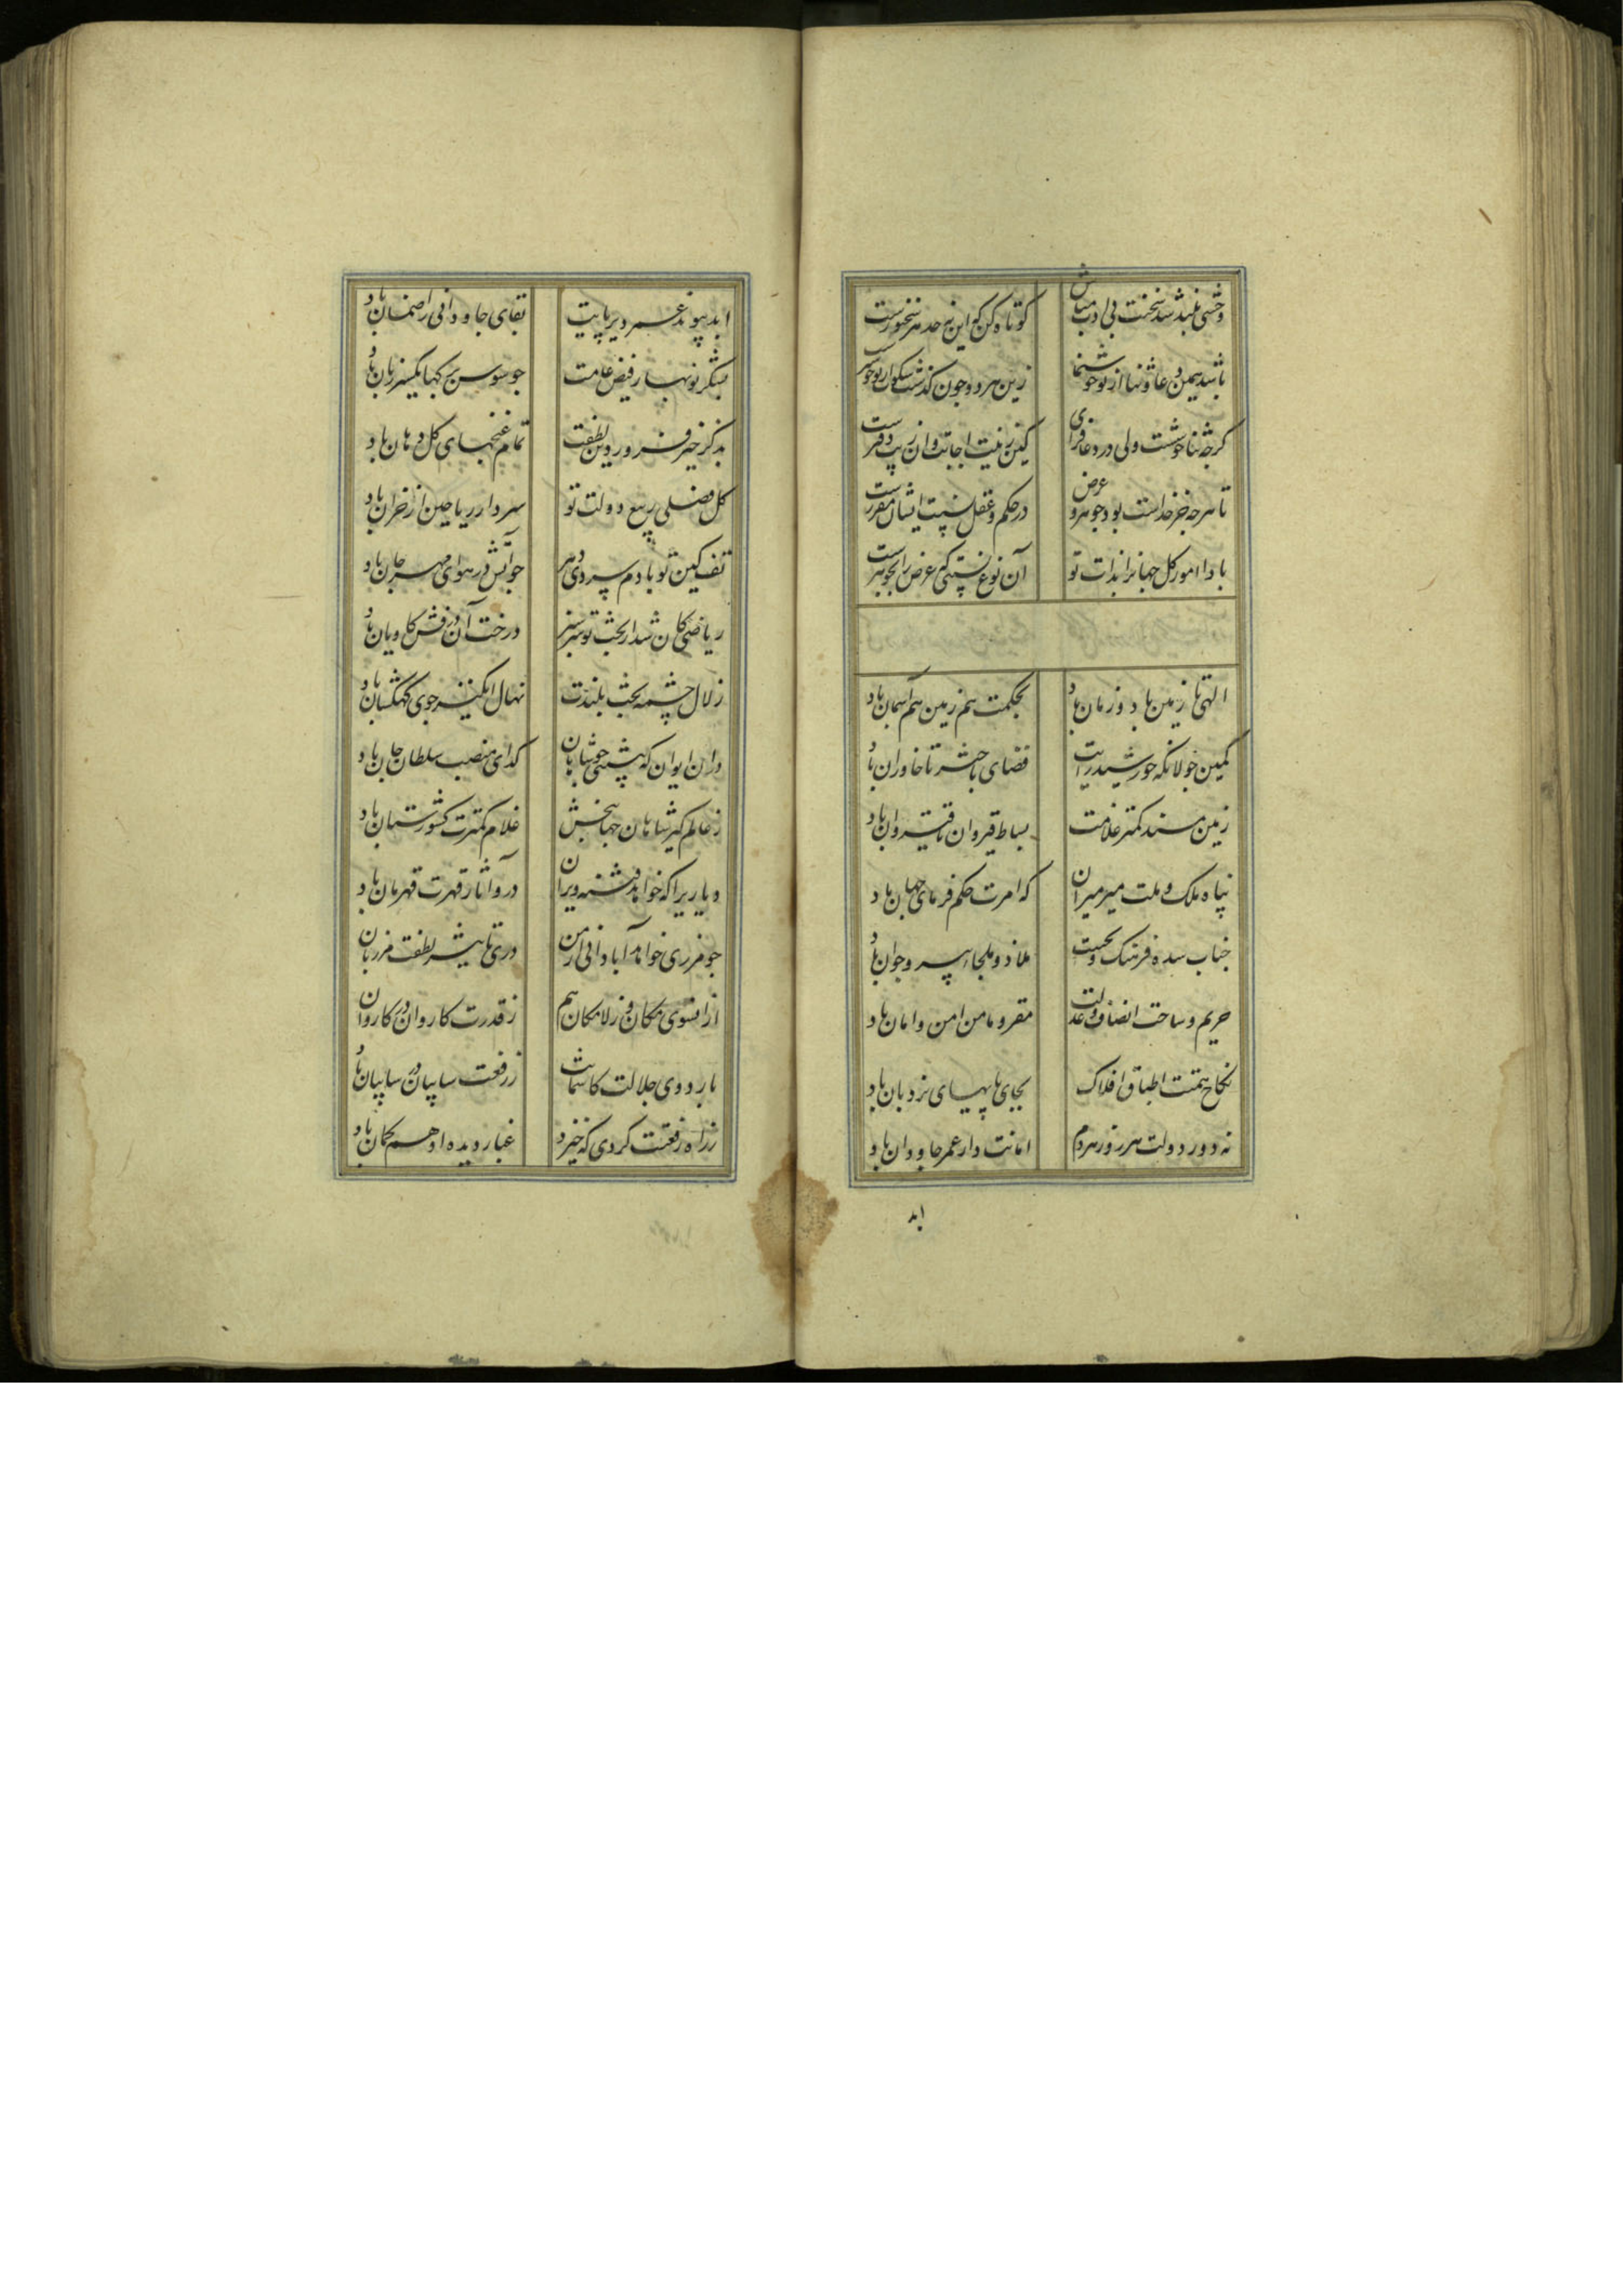 وحشی بلند شد سخنت بی ادب مباش کوتاه کن که این نه حد هر سخنورست
باشد همین دعا و ثنا از تو خوشنما زین هر دو چون گذشت سکوت از تو خوشترست
کرچه ثنا خوشست ولی در دعا فزای
تا هرچه جز خداست بود جوهر و عرض در حکم عقل نسبت ایشان مقررست
بادا امور کل جهانرا بذات تو آن نوع نسبتی که عرض را بجوهرست
الهی تا زمین باد و زمان باد بحکمت هم زمین هم آسمان باد
کمین جولانکه خورشید رایت فضای باختر تا خاوران باد
زمین مسند کمتر غلامت بساط قیروان تا قیروان باد
پناه ملک و ملت میر میران که امرت حکم فرمای جهان باد
جناب سده فرهنک و بحتت ملاذ و ملجاء پیر و جوان باد
حریم و ساحت انصاف و عدلت مقر و مامن امن و امان باد
بکاخ همتت اطباق افلاک بجای پایهای نردبان باد
نه دور دولت هر روز هر دم امانت دار عمر جاودان باد
ابد
ابد پیوند عمر دیرپایت بقای جاودانی را ضمان باد
بشکر نوبهار فیض عامت چو سوسن برکها یکسر زبان باد
بذکر خیر فروردین لطفت تمام غنچهای کل دهان باد
کل فصلی ربیع دولت تو سردار ریاحین از خزان باد
تف کین تو با دم سردی دهر چو آتش در هوای مهرجان باد
ریاضی کان شد از بخت تو سرسبز درخت آن درفش کاویان باد
زلال چشمه بخت بلندت نهال انکیز جوی کهکشان باد
در ان ایوان که پشتی جوشاهان کدای منصب سلطان جان باد
ز عالم کیر شاهان جهانبخش غلام کمترت کشورستان باد
دیاریرا که خواهد فتنه ویران درو آثار قهرت قهرمان باد
چو مرزی خواهد آبادانی از من درو تاثیر لطفت مرزبان
از انسوی مکان وز لامکان هم ز قدرت کاروان در کاروان
باردوی جلالت کاسمانیست ز رفعت سایبان در سایبان باد
ز راه رفعتت کردی که خیزد غبار دیده اوهم کمان باد